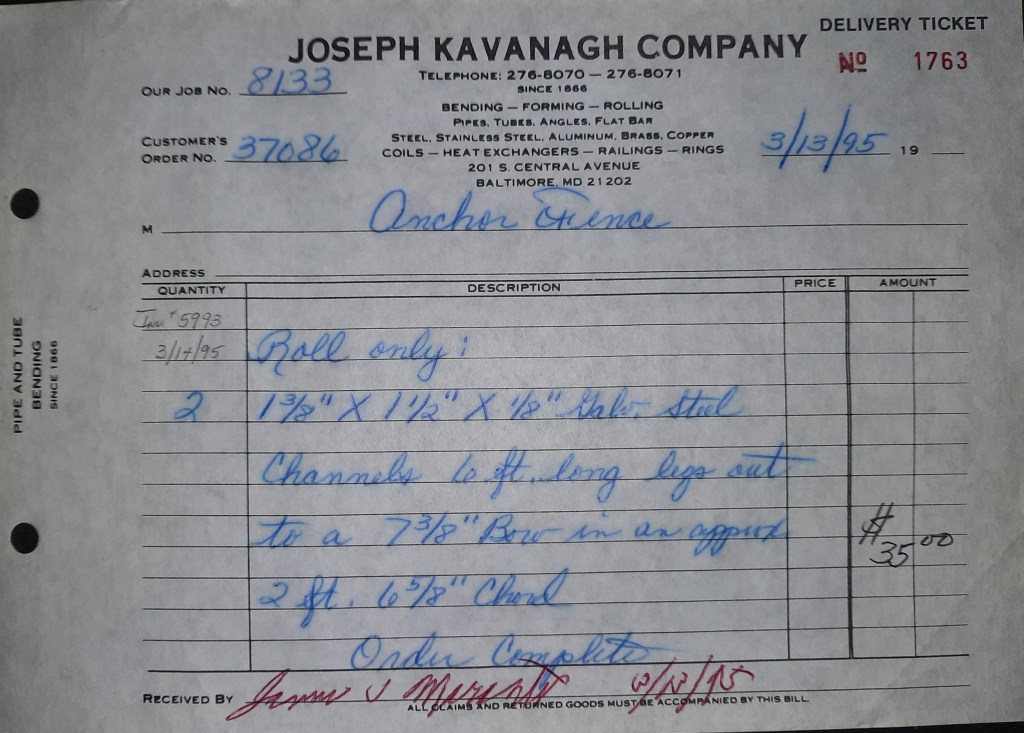 DELIVERY TICKET
JOSEPH KAVANAGH COMPANY
Nº 1763
TELEPHONE: 276-8070 — 276-8071
SINCE 1866
OUR JOB NO. 8133
BENDING — FORMING — ROLLING
PIPES, TUBES, ANGLES, FLAT BAR
STEEL, STAINLESS STEEL, ALUMINUM, BRASS, COPPER
CUSTOMER'S
ORDER NO. 37086
COILS — HEAT EXCHANGERS — RAILINGS — RINGS
3/13/95 19
201 S. CENTRAL AVENUE
BALTIMORE, MD 21202
M Anchor Fence
ADDRESS
QUANTITY DESCRIPTION PRICE AMOUNT
Inv # 5993
3/14/95 Roll only:
2 1 3/8" X 1 1/2" X 1/8" Galv. Steel
Channels 6 ft. long legs out
to a 7 3/8" Bow in an approx
$35.00
2 ft. 6 5/8" Chord
Order Complete
PIPE AND TUBE
BENDING
SINCE 1866
RECEIVED BY James J
ALL CLAIMS AND RETURNED GOODS MUST BE ACCOMPANIED BY THIS BILL.